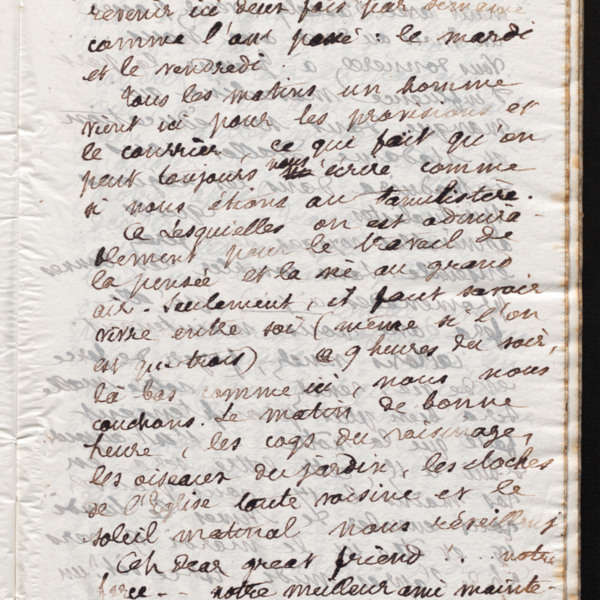 revenir ici deux fois par semaine
comme l'ans passé : le mardi
et le vendredi.
Tous les matins un homme
vient ici pour les provisions et
le courrier, ce qui fait qu'on
peut toujours nous écrire comme
si nous étions au familistère.
A Lesquielles on est admira-
blement pour le travail de
la pensée et la vie au grand
air. Seulement, il faut savoir
vivre entre soi (même si l'on
est que trois) A 9 heures du soir,
là-bas comme ici, nous nous
couchons. Le matin de bonne
heure, les coqs du voisinage,
les oiseaux du jardin, les cloches
de l'Eglise toute voisine et le
soleil matinal nous réveillent
Oh dear great friend . . . notre
force - - notre meilleur ami mainte-